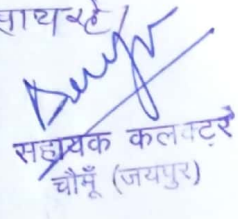 सहायक कलक्टर
चौमूँ (जयपुर)